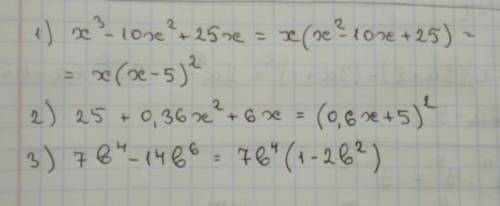 1) x³ - 10x² + 25x = x(x² - 10x + 25) =
= x(x - 5)²
2) 25 + 0,36x² + 6x = (0,6x + 5)²
3) 7b⁴ - 14b⁶ = 7b⁴(1 - 2b²)